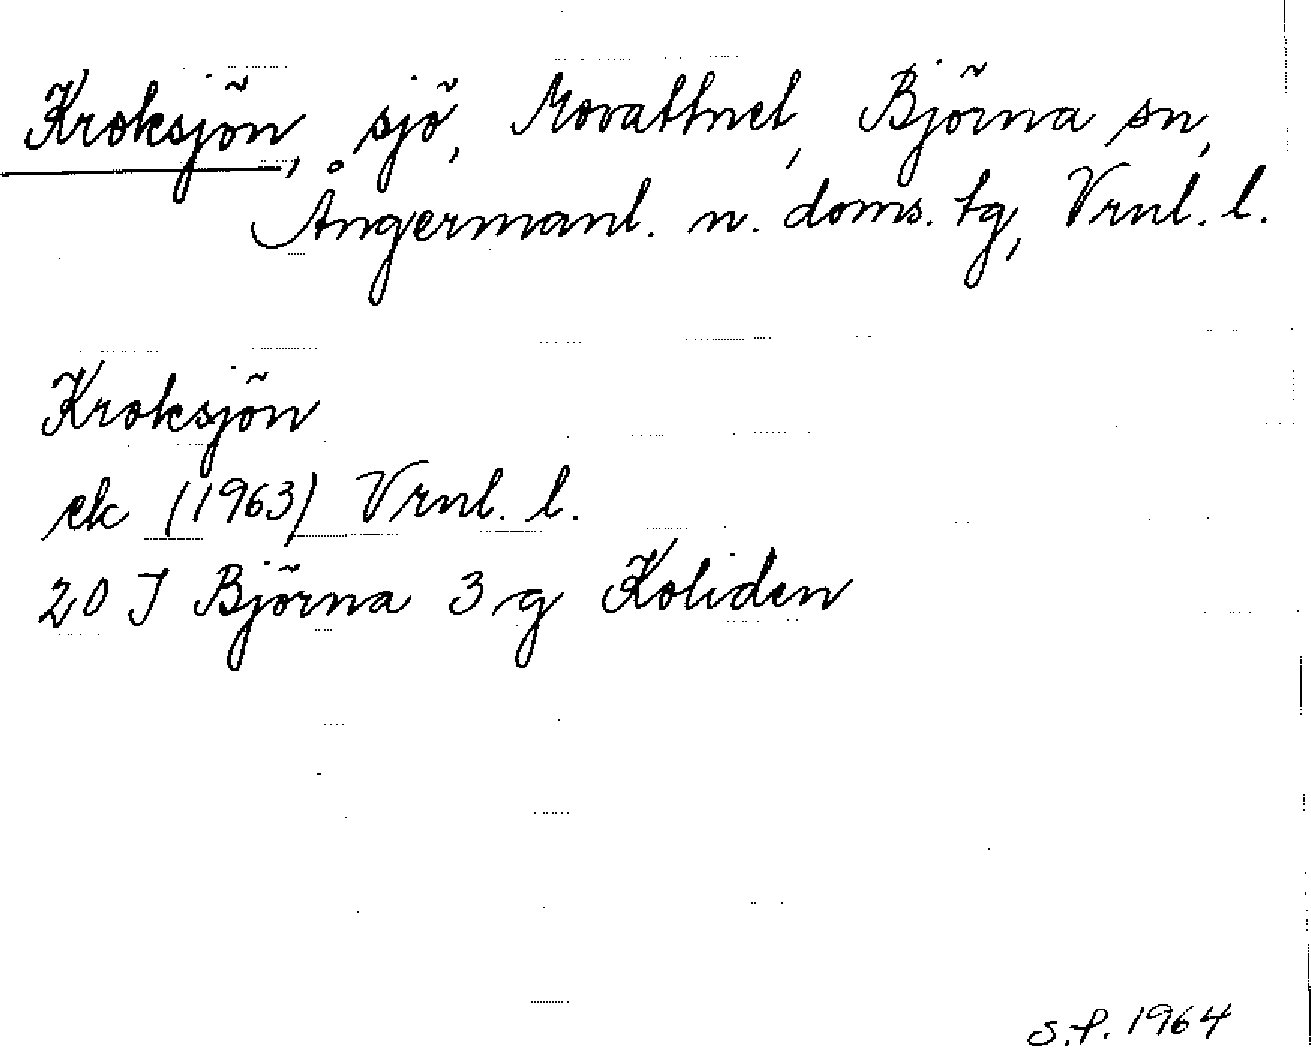 Kroksjön, sjö, Movattnet, Björna sn,
Ångermanl. n. doms. tg, Vrnl. l.
Kroksjön
ek (1963) Vrnl. l.
20 J Björna 3 g Koliden
S.P. 1964